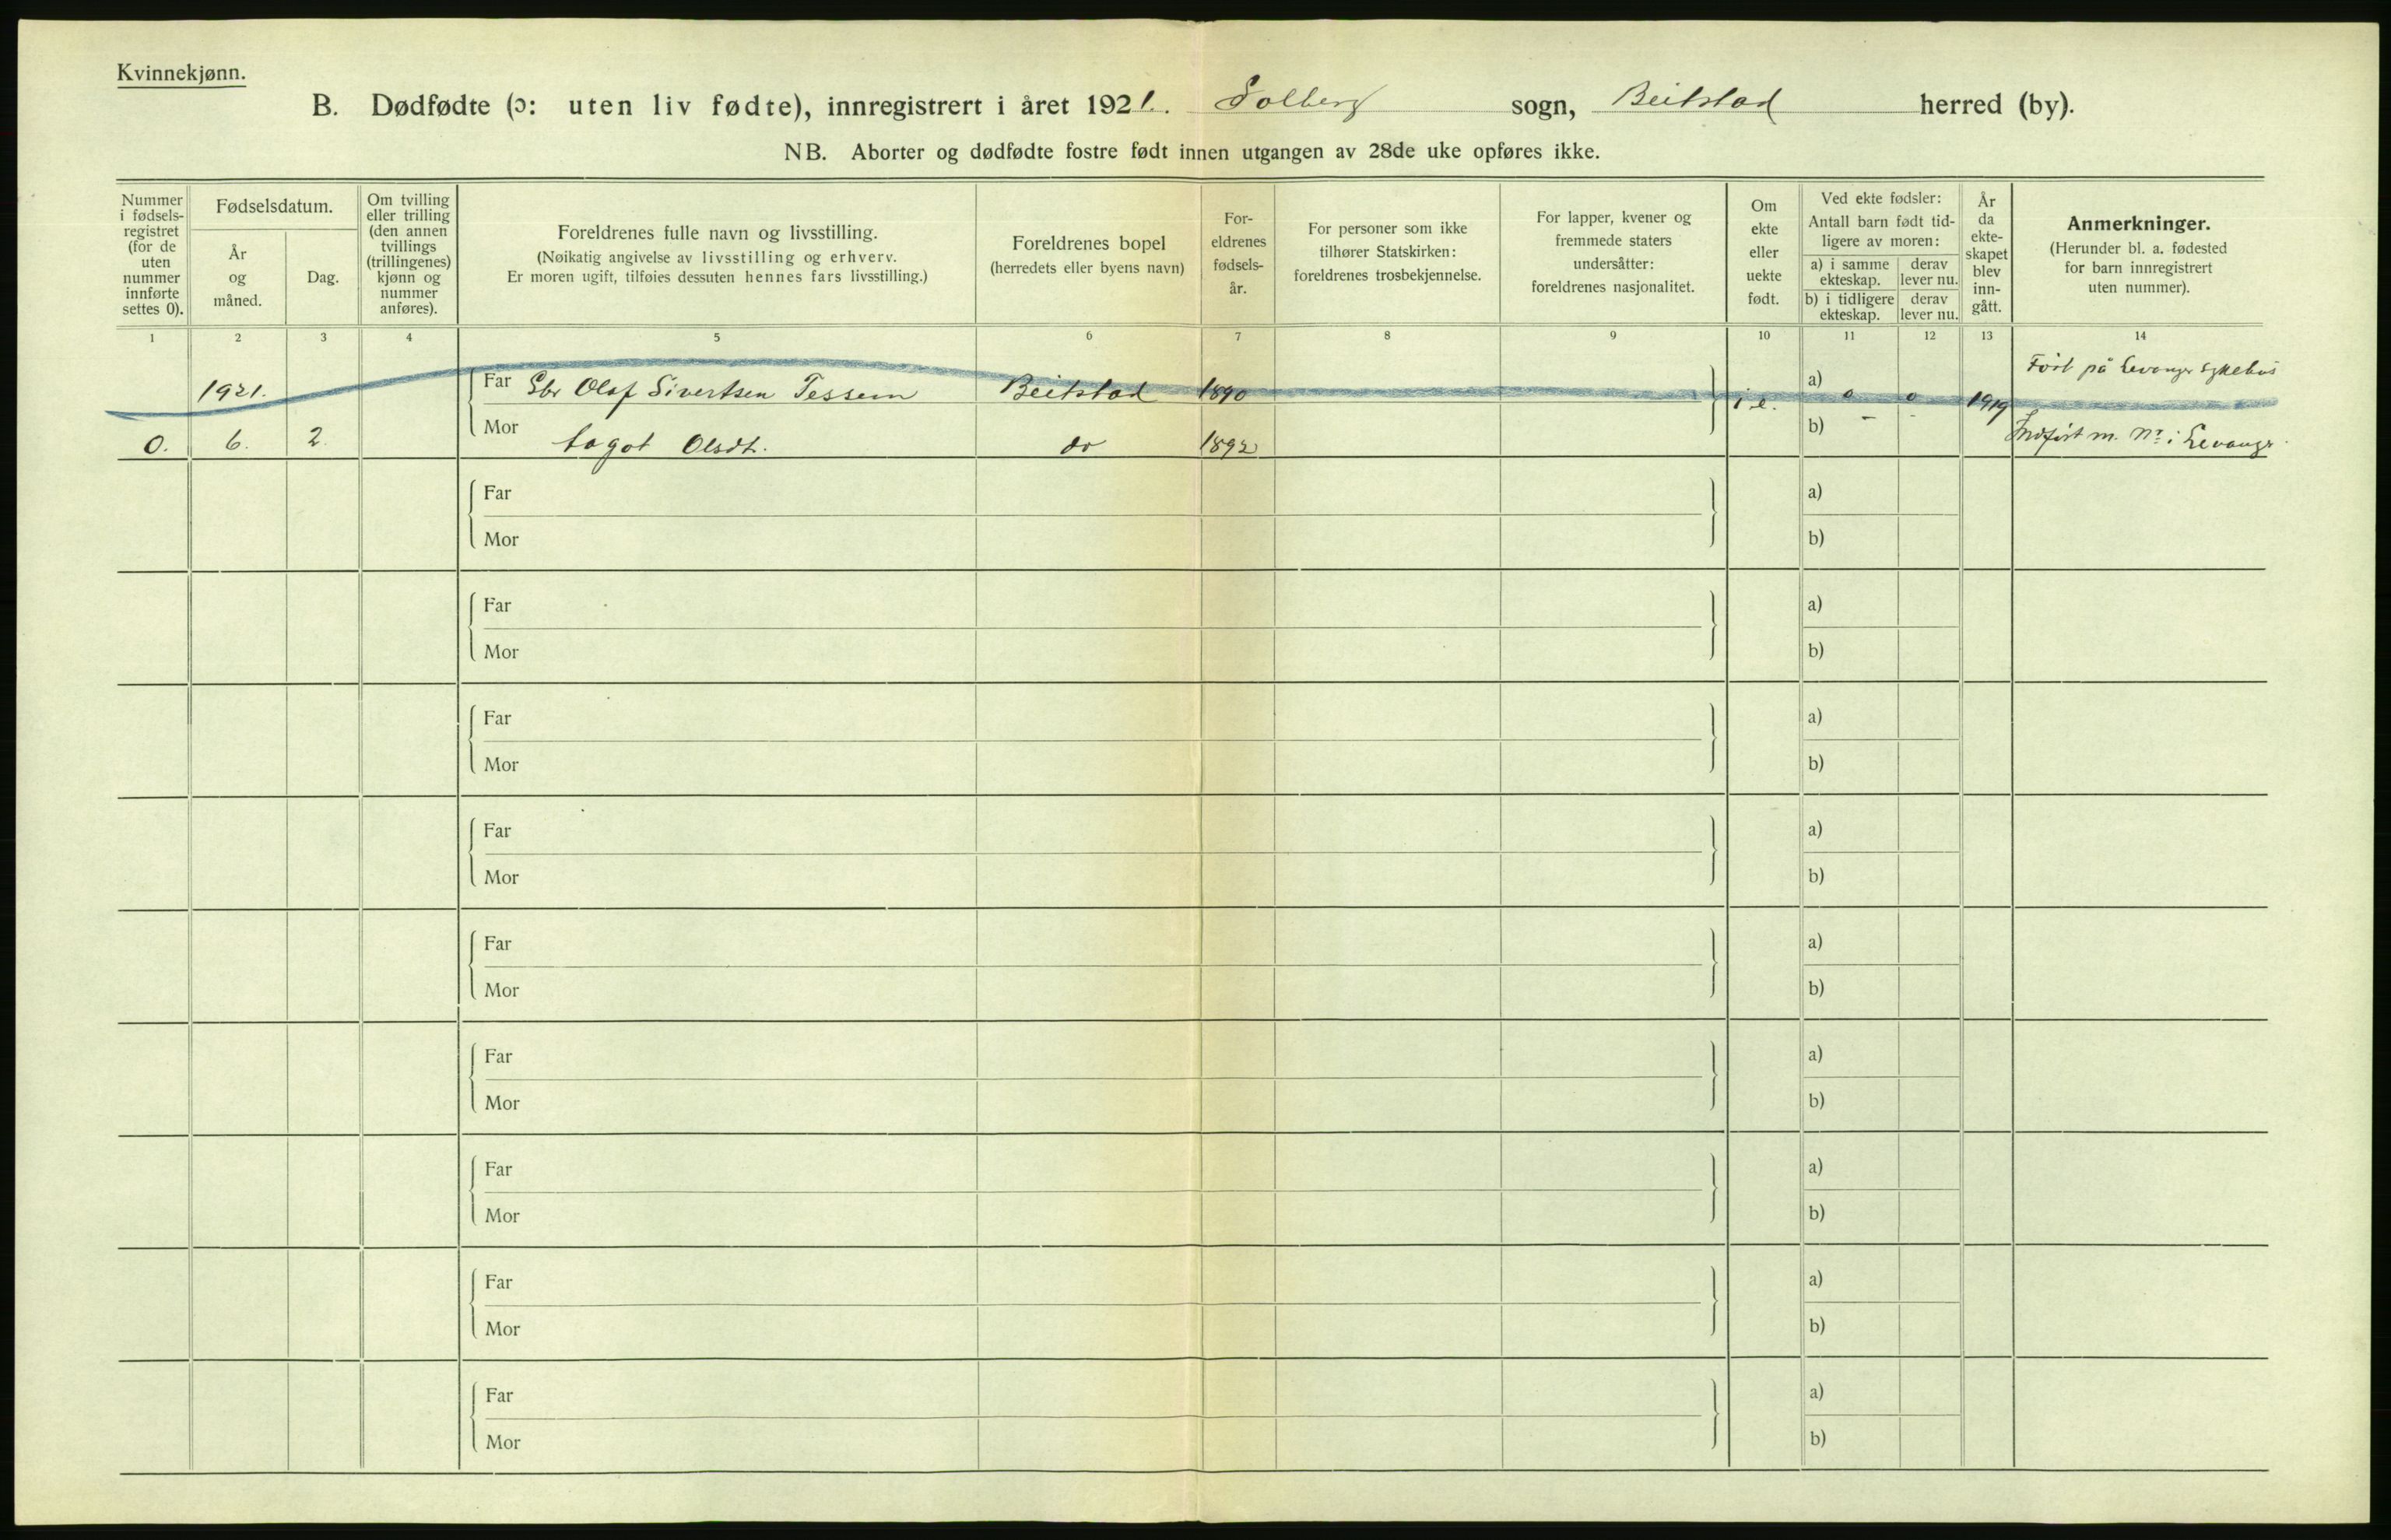 Kvinnekjønn.
B. Dødfødte (ɔ: uten liv fødte), innregistrert i året 1921. Solberg sogn, Beitstad herred (by).
NB. Aborter og dødfødte fostre født innen utgangen av 28de uke opføres ikke.
Nummer
i fødsels-
registret
(for de
uten
nummer
innførte
settes 0).
Fødselsdatum.
År
og
måned.
Dag.
Om tvilling
eller trilling
(den annen
tvillings
(trillingenes)
kjønn og
nummer
anføres).
Foreldrenes fulle navn og livsstilling.
(Nøikatig angivelse av livsstilling og erhverv.
Er moren ugift, tilføies dessuten hennes fars livsstilling.)
Foreldrenes bopel
(herredets eller byens navn)
For-
eldrenes
fødsels-
år.
For personer som ikke
tilhører Statskirken:
foreldrenes trosbekjennelse.
For lapper, kvener og
fremmede staters
undersåtter:
foreldrenes nasjonalitet.
Om
ekte
eller
uekte
født.
Ved ekte fødsler:
Antall barn født tid-
ligere av moren:
a) i samme
ekteskap.
derav
lever nu.
b) i tidligere
ekteskap.
derav
lever nu.
År
da
ekte-
skapet
blev
inn-
gått.
Anmerkninger.
(Herunder bl. a. fødested
for barn innregistrert
uten nummer).
1 2 3 4 5 6 7 8 9 10 11 12 13 14
1921. Far Gbr Olaf Sivertsen Tessem Beitstad 1890 i e. a) 0 0 1919 Född på Levanger sykehus
0. 6. 2. Mor Olsdt. do 1892 b) - - Indført m. Nr. i Levanger.
Far a)
Mor b)
Far a)
Mor b)
Far a)
Mor b)
Far a)
Mor b)
Far a)
Mor b)
Far a)
Mor b)
Far a)
Mor b)
Far a)
Mor b)
Far a)
Mor b)